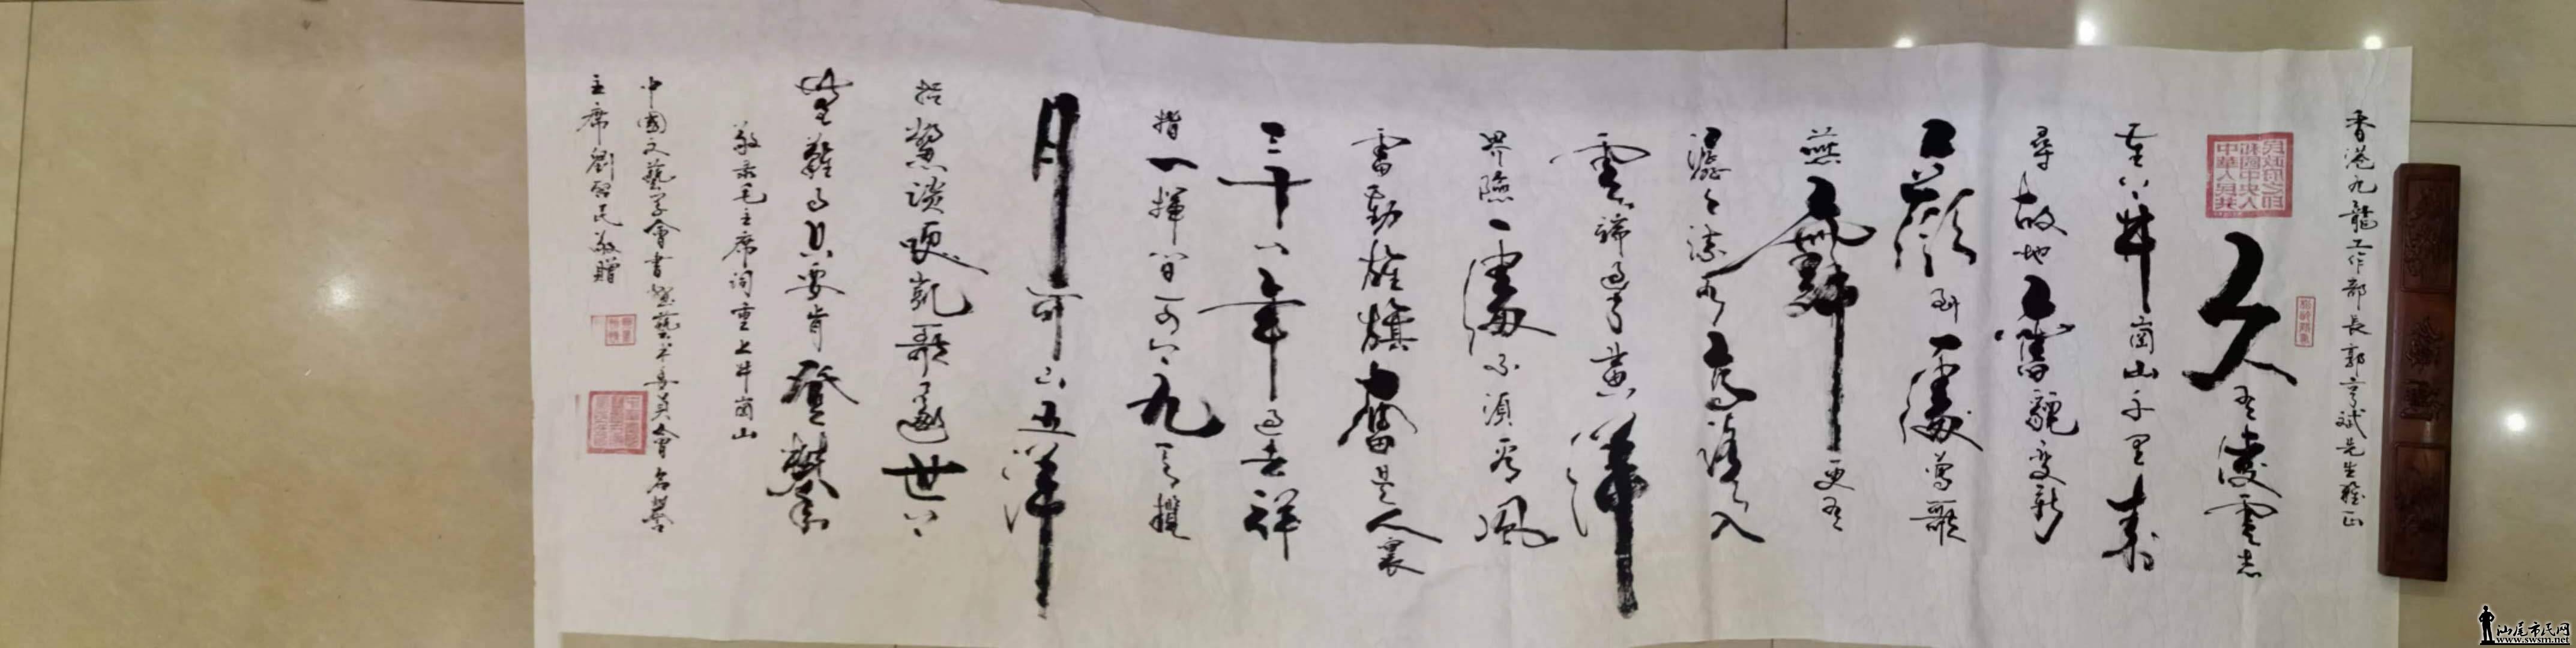 香港九龍工作部長郭亨斌先生雅正
中華人民共和國中央人民政府之印
久有凌雲志
重上井崗山千里來
尋故地舊貌變新
顏到處鶯歌
燕舞更有
潺潺流水高路入
雲端過了黃洋
界險處不須看風
雷動旌旗奮是人寰
三十八年過去彈
指一揮間可上九天攬
月可下五洋
捉鱉談笑凱歌還世上
無難事只要肯登攀
敬录毛主席词重上井崗山
中國文藝學會書畫藝术委員會名譽
主席劉智民敬贈
汕尾市民网
www.swsm.net